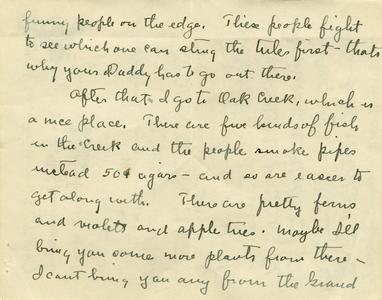 funny people on the edge. These people fight
to see which one can sling the rules first - thats
why your Daddy has to go out there.
After that I go to Oak Creek, which is
a nice place. There are five kinds of fish
in the Creek and the people smoke pipes
instead 50¢ cigars - and so are easier to
get along with. There are pretty ferns
and violets and apple trees. Maybe I'll
bring you some more plants from there -
I cant bring you any from the Grand